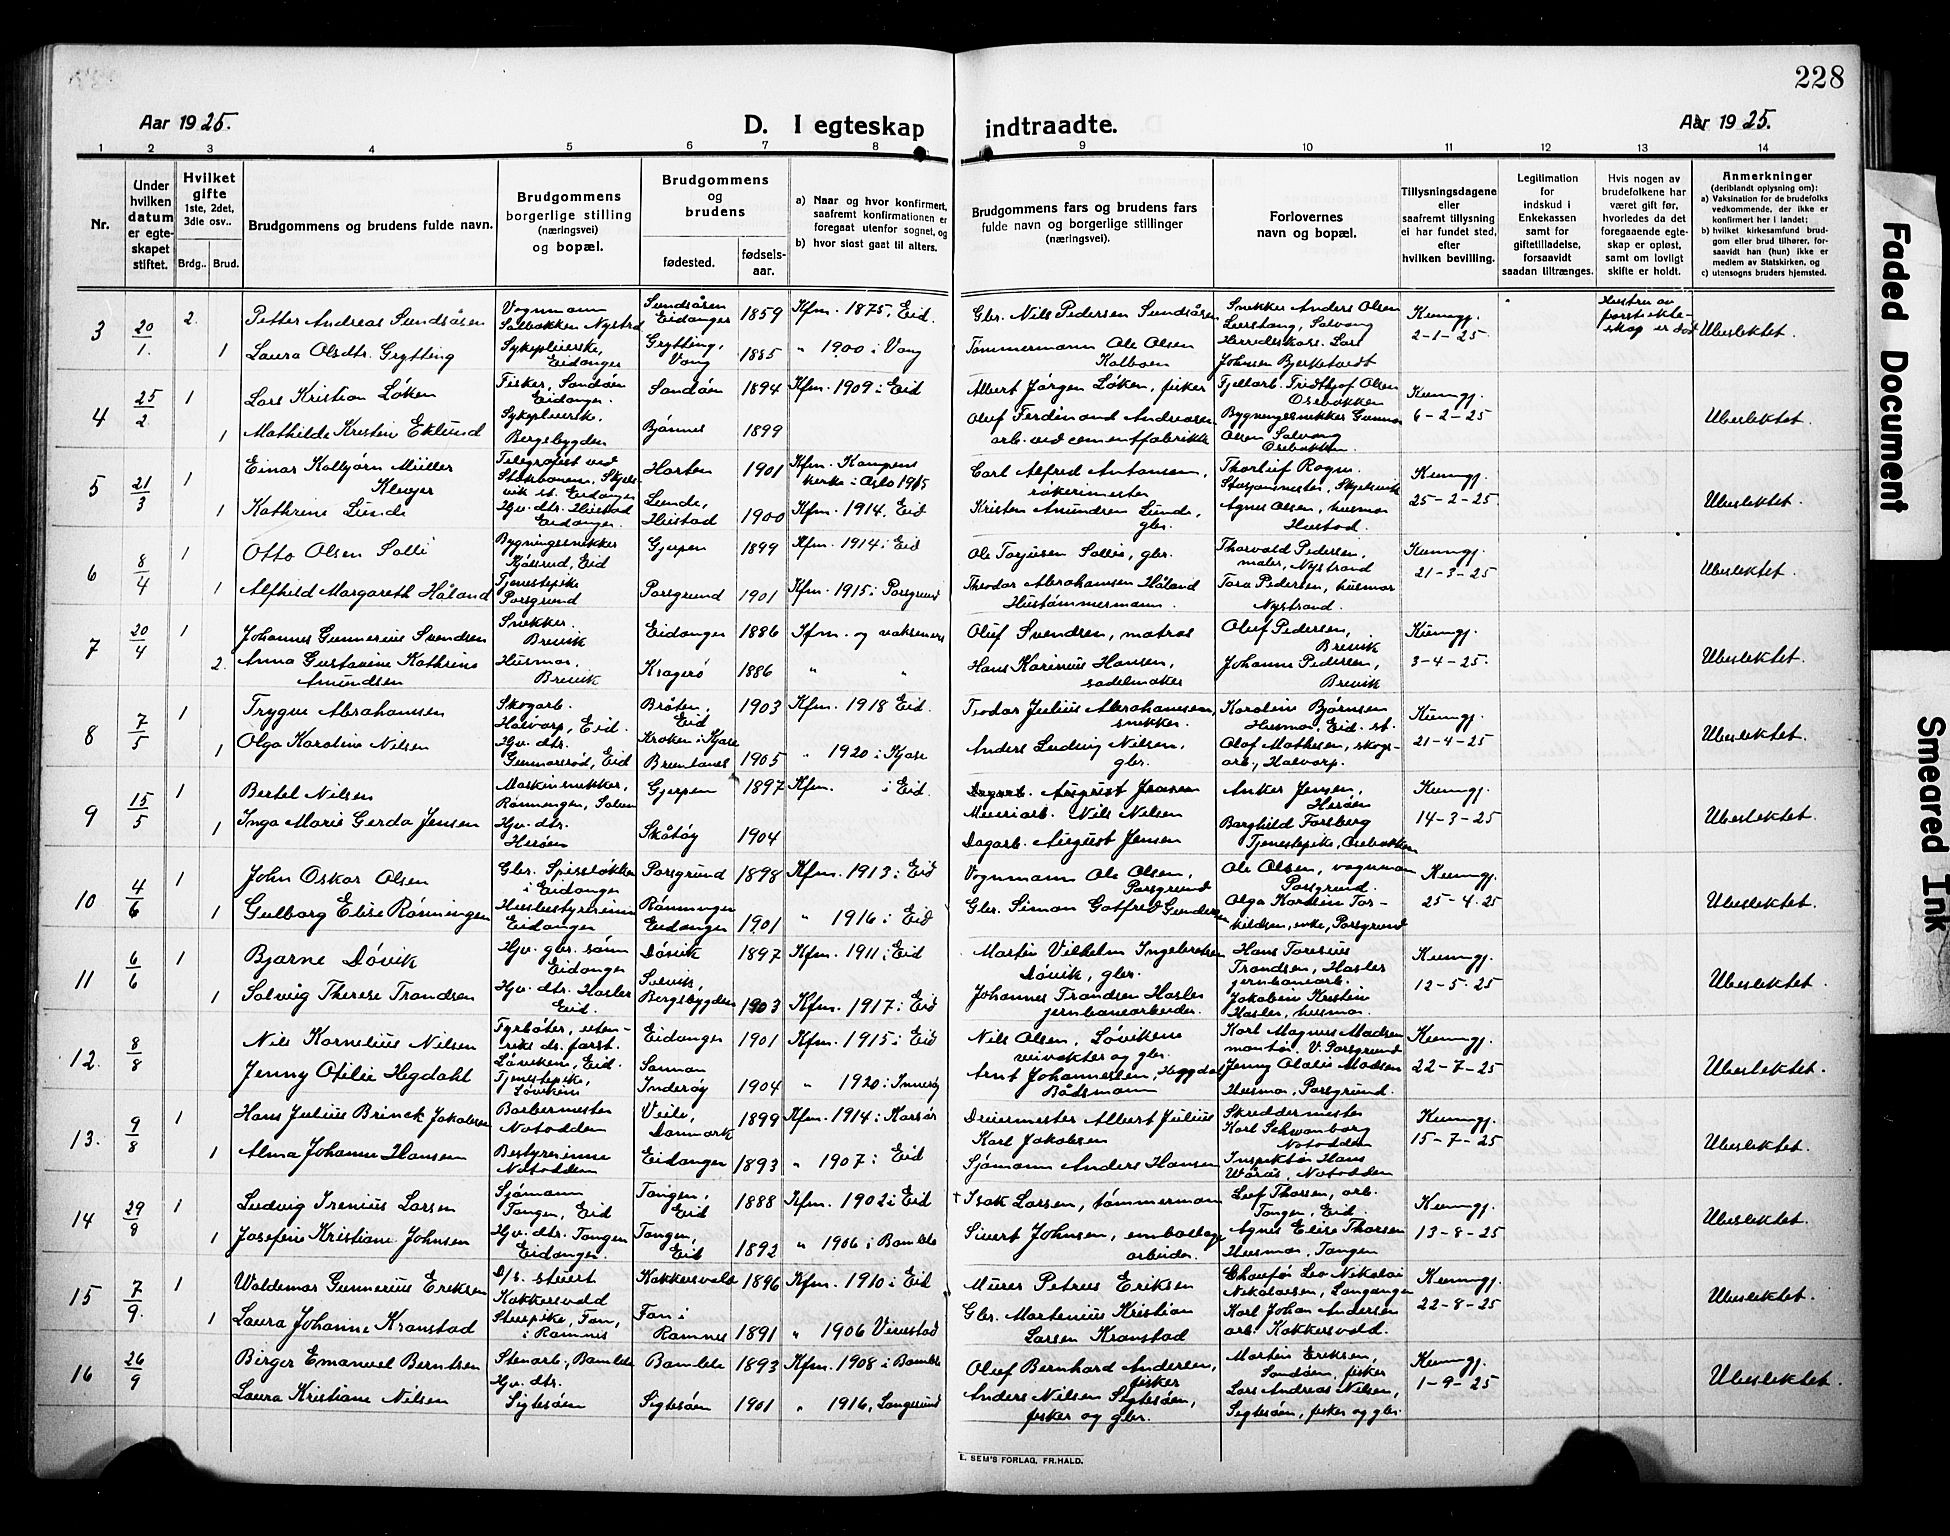 228
Aar 1925.
D. I egteskap indtraadte.
Aar 1925.
1 2 3 4 5 6 7 8 9 10 11 12 13 14
Nr.
Under hvilken datum er egte-skapet stiftet.
Hvilket gifte 1ste, 2det, 3die osv..
Brdg.. Brud.
Brudgommens og brudens fulde navn.
Brudgommens borgerlige stilling (næringsvei) og bopæl.
Brudgommens og brudens
fødested.
fødsels-aar.
a) Naar og hvor konfirmert, saafremt konfirmationen er foregaat utenfor sognet, og
b) hvor sidst gaat til alters.
Brudgommens fars og brudens fars fulde navn og borgerlige stillinger (næringsvei).
Forlovernes navn og bopæl.
Tillysningsdagene eller saafremt tillysning ei har fundet sted, efter hvilken bevilling.
Legitimation for indskud i Enkekassen samt for giftetilladelse, forsaavidt saadan tiltrænges.
Hvis nogen av brudefolkene har været gift før, hvorledes da det foregaaende egte-skap er opløst, samt om lovligt skifte er holdt.
Anmerkninger (deriblandt oplysning om):
a) Vaksination for de brudefolks vedkommende, der ikke er konfirmert her i landet;
b) hvilket kirkesamfund brud-gom eller brud tilhører, for-saavidt han (hun) ikke er medlem av Statskirken, og
c) utensogns bruders hjemsted.
3 20/1. 2. Petter Andreas Sundsåsen Vognmann Salbakken Nystrd Sundsåsen Eidanger 1859 Kfm. 1875, Eid. Gbr. Nils Pedersen Sundsåsen Snekker Anders Olsen Leerstang, Salvang Kunngj. 2-1-25 Hustru av første ekte-skap er død Ubeslektet.
1 Laura Olsdtr. Grytting Sykepleierske, Eidanger Grytting, Vang 1885 " 1900 i Vang Tømmermann Ole Olsen Kalboen Herredskass. Lars Johnsen Bjerketvedt
4 25/2 1 Lars Kristian Løken Fisker, Sandøen Eidanger. Sandøen 1894 Kfm. 1909 i Eid Albert Jørgen Løken, fisker Fjellarb. Fridthjof Olsen Ørebakken Kunngj. 6-2-25 Ubeslektet.
1 Mathilde Kristin Eklund Sykepleierske. Bergsbygden Bjønnes 1899 Oluf Ferdinand Andreasen arb. ved cementfabrikk Bygningssnekker Gunnar Olsen Salvang Ørebakken
5 21/3 1 Einar Kolbjørn Müller Klenger Telegrafist ved Statsbanene, Skjels-vik st. Eidanger Horten 1901 Kfm. Kampens kirke i Oslo 1915 Carl Alfred Antonsen, røkerimester Thorleif Rogn. Stasjonsmester, Skjelsvik Kunngj. 25-2-25 Ubeslektet.
1 Kathrine Lunde Hjv. dtr. Heistad Eidanger. Lunde, Heistad 1900 Kfm. 1914, Eid Kristen Amundsen Lunde, gbr. Agnes Olsen, husmor Heistad.
6 8/4 1 Otto Olsen Solli Bygningssnekker Kjølsrud, Eid Gjerpen 1899 Kfm. 1914 i Eid Ole Torjusen Sollie, gbr. Thorvald Pedersen, maler, Nystrand Kunngj. 21-3-25 Ubeslektet.
1 Alfhild Margareth Håland Tjenestepike Porsgrund Porsgrund 1901 Kfm. 1915 i Porsgrund Theodor Abrahamsen Håland Hustømmermann. Tora Pedersen, husmor Nystrand.
7 20/4 1 Johannes Gunnerius Svendsen Snekker. Brevik Eidanger 1886 Kfm. og vaksinert Oluf Svendsen, matros Oluf Pedersen, Brevik Kunngj. 3-4-25. Ubeslektet.
2. Anna Gustavine Kathrine Amundsen Husmor, Brevik Kragerø 1886 " " Hans Karinius Hansen, sadelmaker Johanne Pedersen, Brevik
8 7/5 1 Trygve Abrahamsen Skogarb. Halvarp, Eid. Bråten, Eid 1903 Kfm. 1918 Eid. Teodor Julius Abrahamsen, snekker. Karoline Bjørnsen Husmor, Eid. st. Kunngj. 21-4-25 Ubeslektet.
1 Olga Karoline Nilsen Hjv. dtr. Gunnarsrød, Eid Kroken i Kjose Brunlanes 1905 " 1920 i Kjose Anders Ludvig Nilsen, gbr. Olaf Mathisen, skogs-arb., Halvarp.
9 15/5 1 Bertel Nilsen Maskinsnekker, Rønningen, Solum Gjerpen 1897 Kfm. i Eid. Dagarb. August Jensen Murerarb. Nils Nilsen Anker Jensen, Herøen Kunngj. 14-3-25 Ubeslektet.
1 Inga Marie Gerda Jensen Hjv. dtr. Herøen Skåtøy 1904 Dagarb. August Jensen Borghild Forsberg Tjenestepike, Ørebakken
10 4/6 1 John Oskar Olsen Gbr. Spissløkken i Eidanger Porsgrund 1898 Kfm. 1913 i Eid Vognmann Ole Olsen, Porsgrund Ole Olsen, vognmann Porsgrund. Kunngj. 25-4-25 Ubeslektet.
1 Gulborg Elise Rønningen Husbestyrerinne Eidanger Rønningen Eidanger 1901 " 1916 i Eid Gbr. Simon Gotfred Gundersen Olga Karolin Tor-kildsen, enke, Porsgrund
11 6/6 1 Bjarne Døvik Hjv. gbr. sønn Eidanger Døvik 1897 Kfm. 1911 i Eid Martin Vilhelm Ingebretsen Døvik, gbr. Hans Toresius Trondsen, Hasler jernbanearb. Kunngj. 12-5-25 Ubeslektet.
1 Solveig Therese Trondsen Hjv. dtr. Hasler Eid. Solvik, Bergsbygden 1903 Kfm. 1917 i Eid Johannes Trondsen Hasler jernbanearbeider. Jakobine Kristine Hasler, husmor.
12. 8/8 1 Nils Kornelius Nilsen Fyrbøter, uten-riks ds. fart. Løvikene, Eid. Eidanger 1901 Kfm. 1915 i Eid Nils Olsen, Løvikene veivokter og gbr. Karl Magnus Madsen montør. V. Porsgrund Kunngj. 22-7-25 Ubeslektet.
1 Jenny Otilie Hegdahl Tjenestepike, Løvikene Sannan Inderøy 1904 " 1920 i Innerøy Arnt Johannesen, Heggdal Bådsmann Jenny Olalie Madsen Husmor, Porsgrund.
13. 9/8 1 Hans Julius Brinck Jakobsen Barbermester Notodden Veile, Danmark 1899 Kfm. 1914 i Korsør Dreiermester Albert Julius Karl Jakobsen Skreddermester Karl Schwanborg Notodden Kunngj. 15-7-25 Ubeslektet.
1 Alma Johanne Hansen Bestyrerinne Notodden Eidanger 1893 " 1907 i Eid Sjømann Anders Hansen Inspektør Hans Wårås, Notodden
14 29/8 1 Ludvig Irenius Larsen Sjømann Tangen, Eid Tangen, Eid 1888 Kfm. 1902 i Eid † Isak Larsen, tømmermann Leif Thorsen, arb. Tangen, Eid. Kunngj. 13-8-25 Ubeslektet.
1 Josefine Kristiane Johnsen Hjv. dtr. Tangen Eidanger. Tangen, Eid 1892 " 1906 i Bamble Sivert Johnsen, emballage arbeider. Agnes Elise Thorsen Husmor, Tangen
15 7/9. 1 Waldemar Gunnerius Eriksen D/s. stuert Kokkersvold Kokkersvold 1896 Kfm. 1910 i Eid Murer Petrus Eriksen Chaufør Leo Nikolai Nikolaisen, Langangen Kunngj. 22-8-25 Ubeslektet.
1 Laura Johanne Kranstad Stuepike, Fon, i Ramnes Fon i Ramnes 1891 " 1906 Virestad Gbr. Martenius Kristian Larsen Kranstad Karl Johan Andersen arb. Kokkersvold.
16 26/9 Birger Emanuel Berntsen Stenarb., Bamble Bamble 1893 Kfm. 1908 i Bamble Oluf Bernhard Andersen, fisker Martin Eriksen, Sandøen, fisker Kunngj. 1-9-25 Ubeslektet.
Laura Kristiane Nilsen Hjv. dtr. Sigtesøen Sigtesøen 1901 " 1916, Langesund Anders Nilsen Sigtesøen, fisker og gbr. Lars Andreas Nilsen, Sigtesøen, fisker og gbr.
E. SEM'S FORLAG, FR.HALD.
Faded Document
Smeared Ink